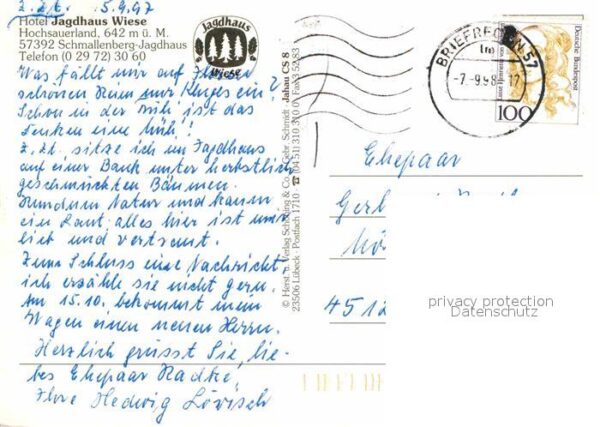 z. Zt. 5.9.97
Hotel Jagdhaus Wiese
Hochsauerland, 642 m ü. M.
57392 Schmallenberg-Jagdhaus
Telefon (0 29 72) 30 60
Jagdhaus
Wiese
Was fällt mir auf
schönen Reim nur Kluges ein?
Schon in der Früh' ist das
Denken eine Müh'!
Z. Zt. sitze ich im Jagdhaus
auf einer Bank unter herbstlich
geschmückten Bäumen.
Rundum Natur und kaum
ein Laut, alles hier ist uns
lieb und vertraut.
Zum Schluss eine Nachricht,
ich erzähle sie nicht gern.
Am 15.10. bekommt mein
Wagen einen neuen Herrn.
Herzlich grüsst Sie, lie-
bes Ehepaar Radtke,
Ihre Hedwig
© Herst. u. Verlag Schöning & Co. + Gebr. Schmidt · Jahau CS 8
23506 Lübeck · Postfach 1710 · ☎ (04 51) 310 310
BRIEFREGION 57
Deutsche Bundespost
100
Ehepaar
4512
privacy protection
Datenschutz